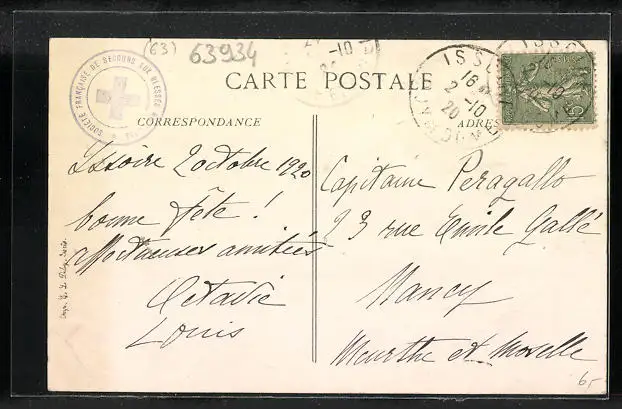 (63)
63934
SOCIÉTÉ FRANÇAISE DE SECOURS AUX BLESSÉS
CARTE POSTALE
CORRESPONDANCE
ADRES
ISSO
16
2 -10
20
PUY-DE-DOME
ISSO
-10
Issoire 2 octobre 1920
bonne fête !
affectueuses amitiés
Octavie
Louis
Capitaine Peragallo
23 rue Emile Gallé
Nancy
Meurthe et Moselle
6,-